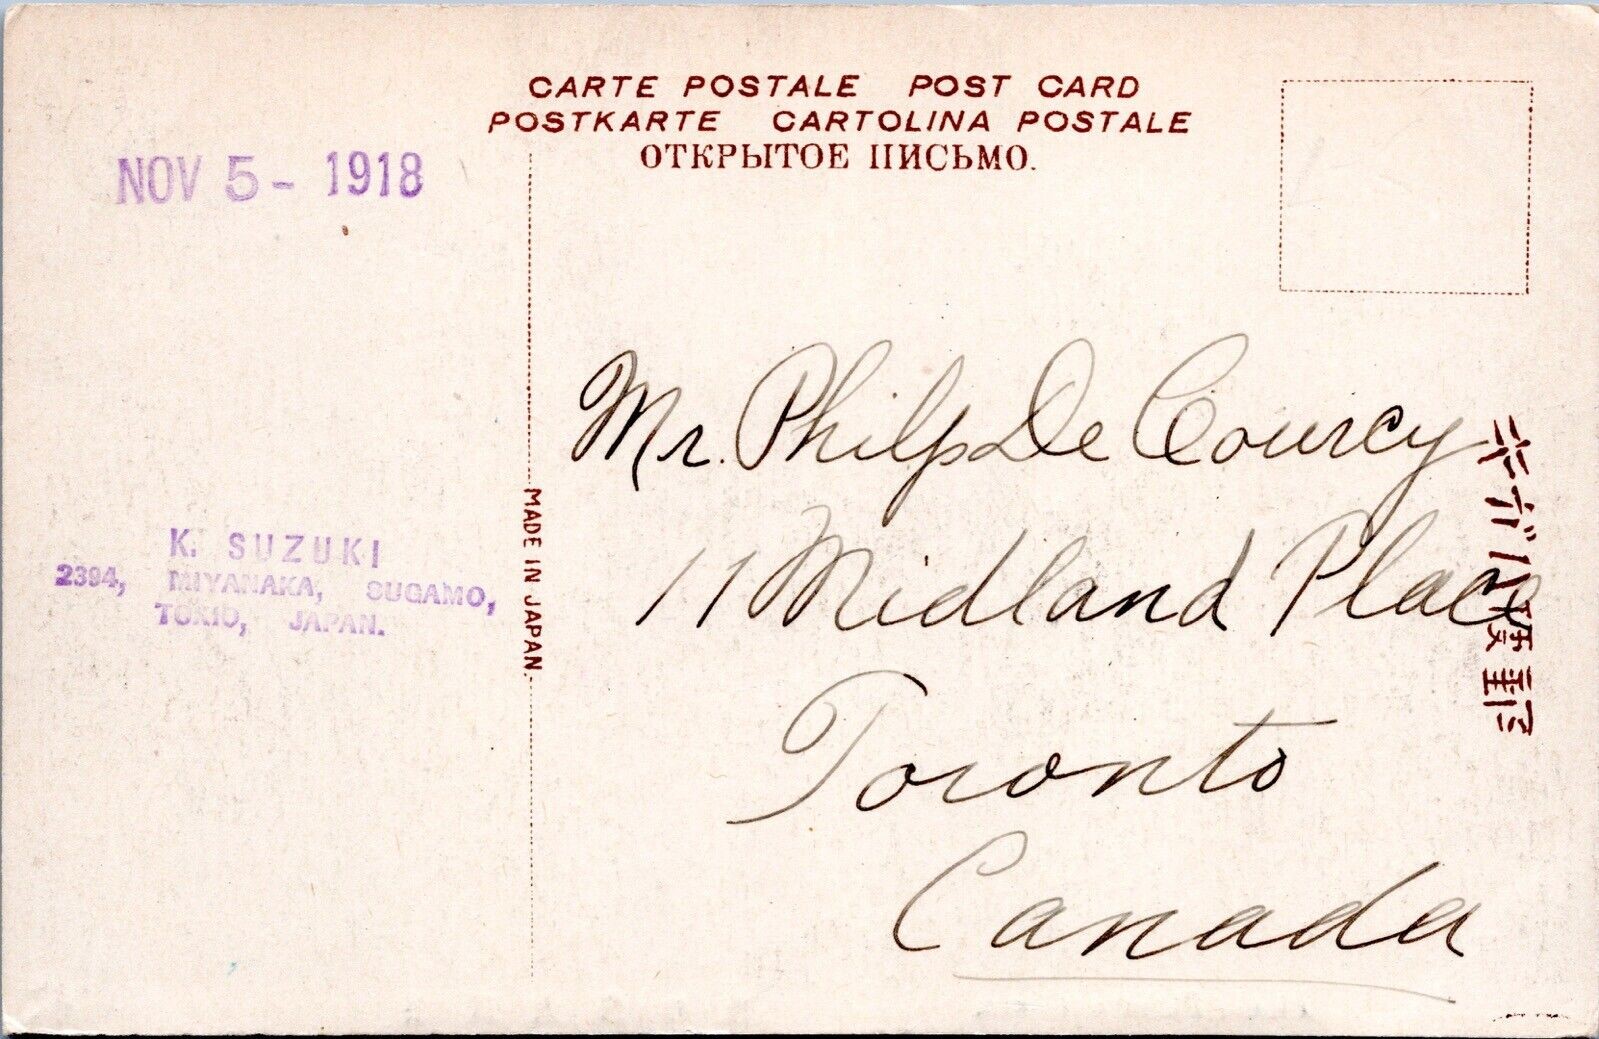 CARTE POSTALE POST CARD
POSTKARTE CARTOLINA POSTALE
ОТКРЫТОЕ ПИСЬМО.
NOV 5 - 1918
K. SUZUKI
2394, MIYANAKA, SUGAMO,
TOKIO, JAPAN.
MADE IN JAPAN.
Mr. Philip De Courcy
11 Midland Place
Toronto
Canada